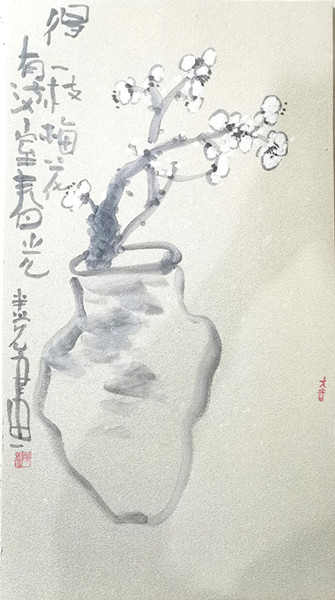 得一枝梅花
有满室春光